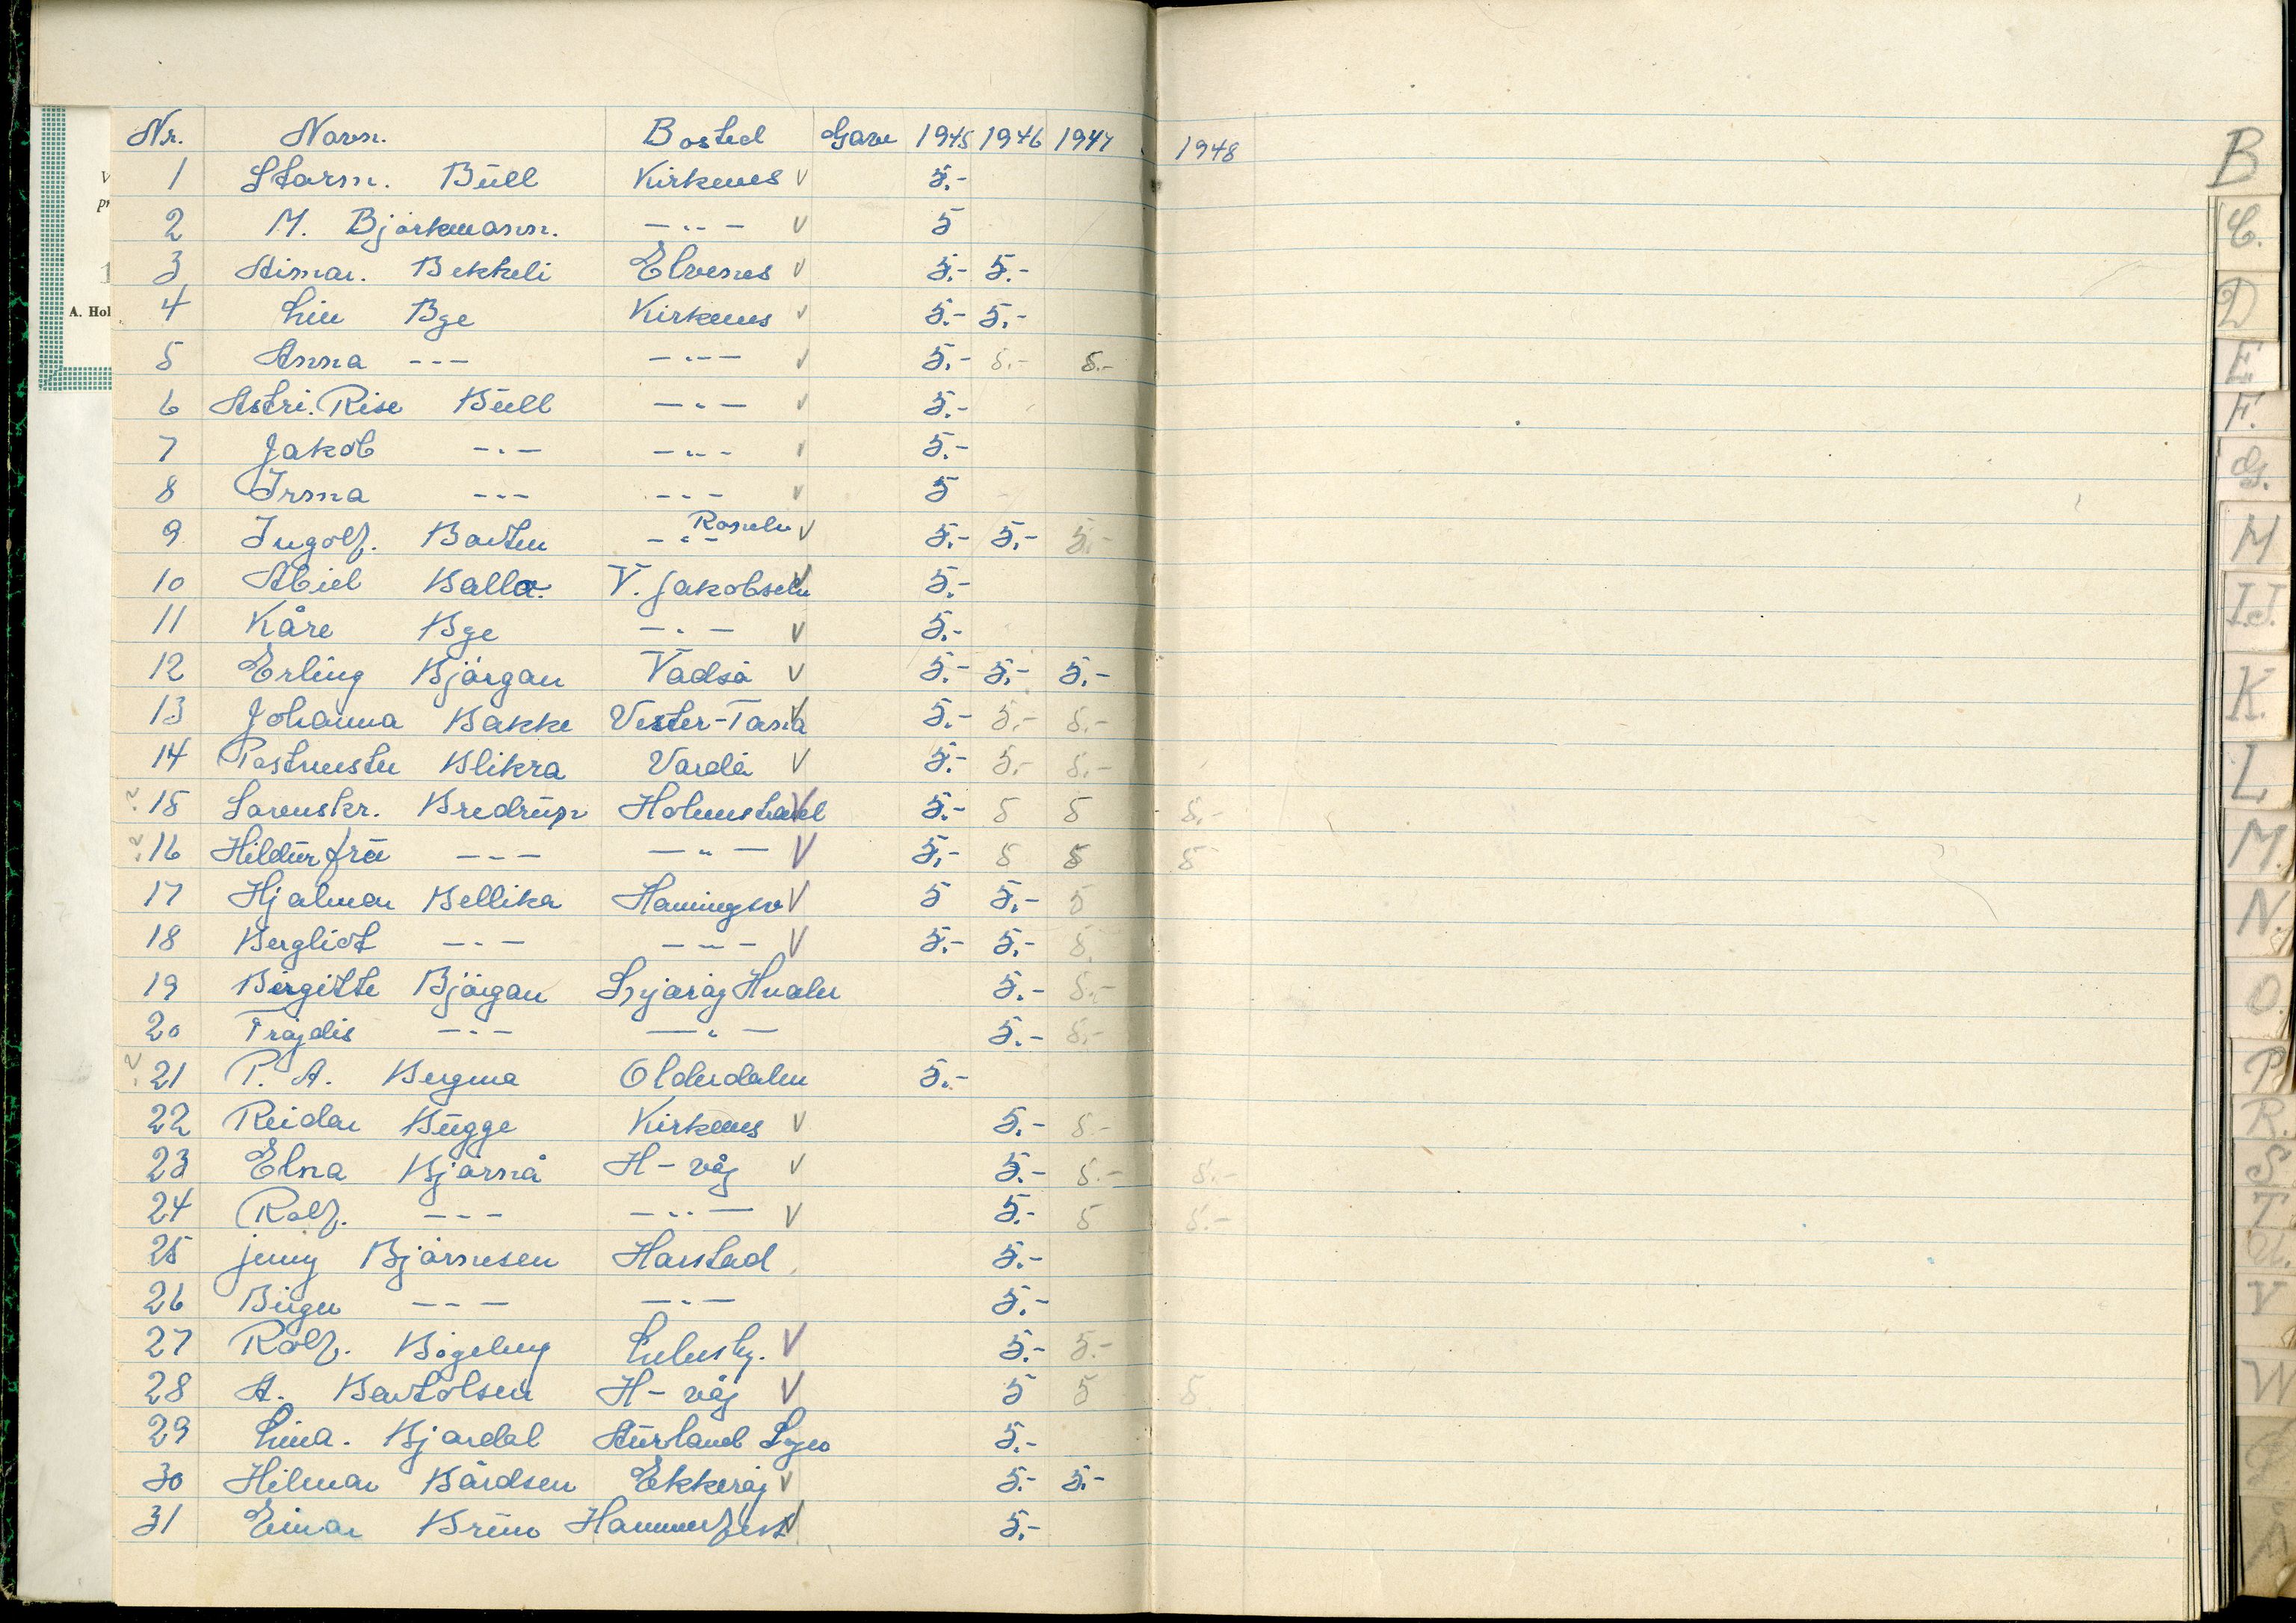 Nr. Navn. Bosted Gave 1945 1946 1947 1948
1 Storm. Büll Kirkenes v 5.-
2 M. Bjørkmann. -"- v 5
3 Aimar. Bekkeli Elvenes v 5.- 5.-
4 Lin Bye Kirkenes v 5.- 5.-
5 Anna --- -"- v 5.- 5.- 5.-
6 Astri. Rise Büll -"- v 5.-
7 Jakob --- -"- 5.-
8 Irma --- --- v 5
9 Ingolf. -"- v 5.- 5.- 5.-
10 Abiel Balla. V. Jakobselv v 5.-
11 Kåre Bye -"- v 5.-
12 Erling Bjørgan Vadsø v 5.- 5.- 5.-
13 Johanna Bakke Vester-Tana v 5.- 5.- 5.-
14 Postmester Blikra Vardø v 5.- 5.- 5.-
? 15 Sorenskr. Bredrup Holmestrand v 5.- 5 5 5.-
? 16 Hildur frü --- -"- v 5.- 5 5 5
17 Hjalmar Bellika Honningsv v 5 5.- 5
18 Bergliot --- -"- v 5.- 5.- 5.
19 Birgitte Bjørgan 5.- 5.-
20 Frøydis --- -"- 5.- 5.-
? 21 P. A. Bergmo Olderdalen 5.-
22 Reidar Bügge Kirkenes v 5.- 5.-
23 Elna Bjørnå H-våg v 5.- 5.- 5.-
24 Rolf. --- -"- v 5.- 5 5.-
25 jenny Bjørnesen Harstad 5.-
26 Birger --- -"- 5.-
27 Rolf. v 5.- 5.-
28 A. Bertolsen H-våg v 5 5 5
29 Lina. Bjørdal 5.-
30 Hilmar Bårdsen Ekkerøy v 5.- 5.-
31 Einar Brün Hammerfest v 5.-
A. Hol
B
C.
D
E.
F.
G.
H
I.J.
K.
L
M.
N.
O.
P
R.
S
T
U.
V
W